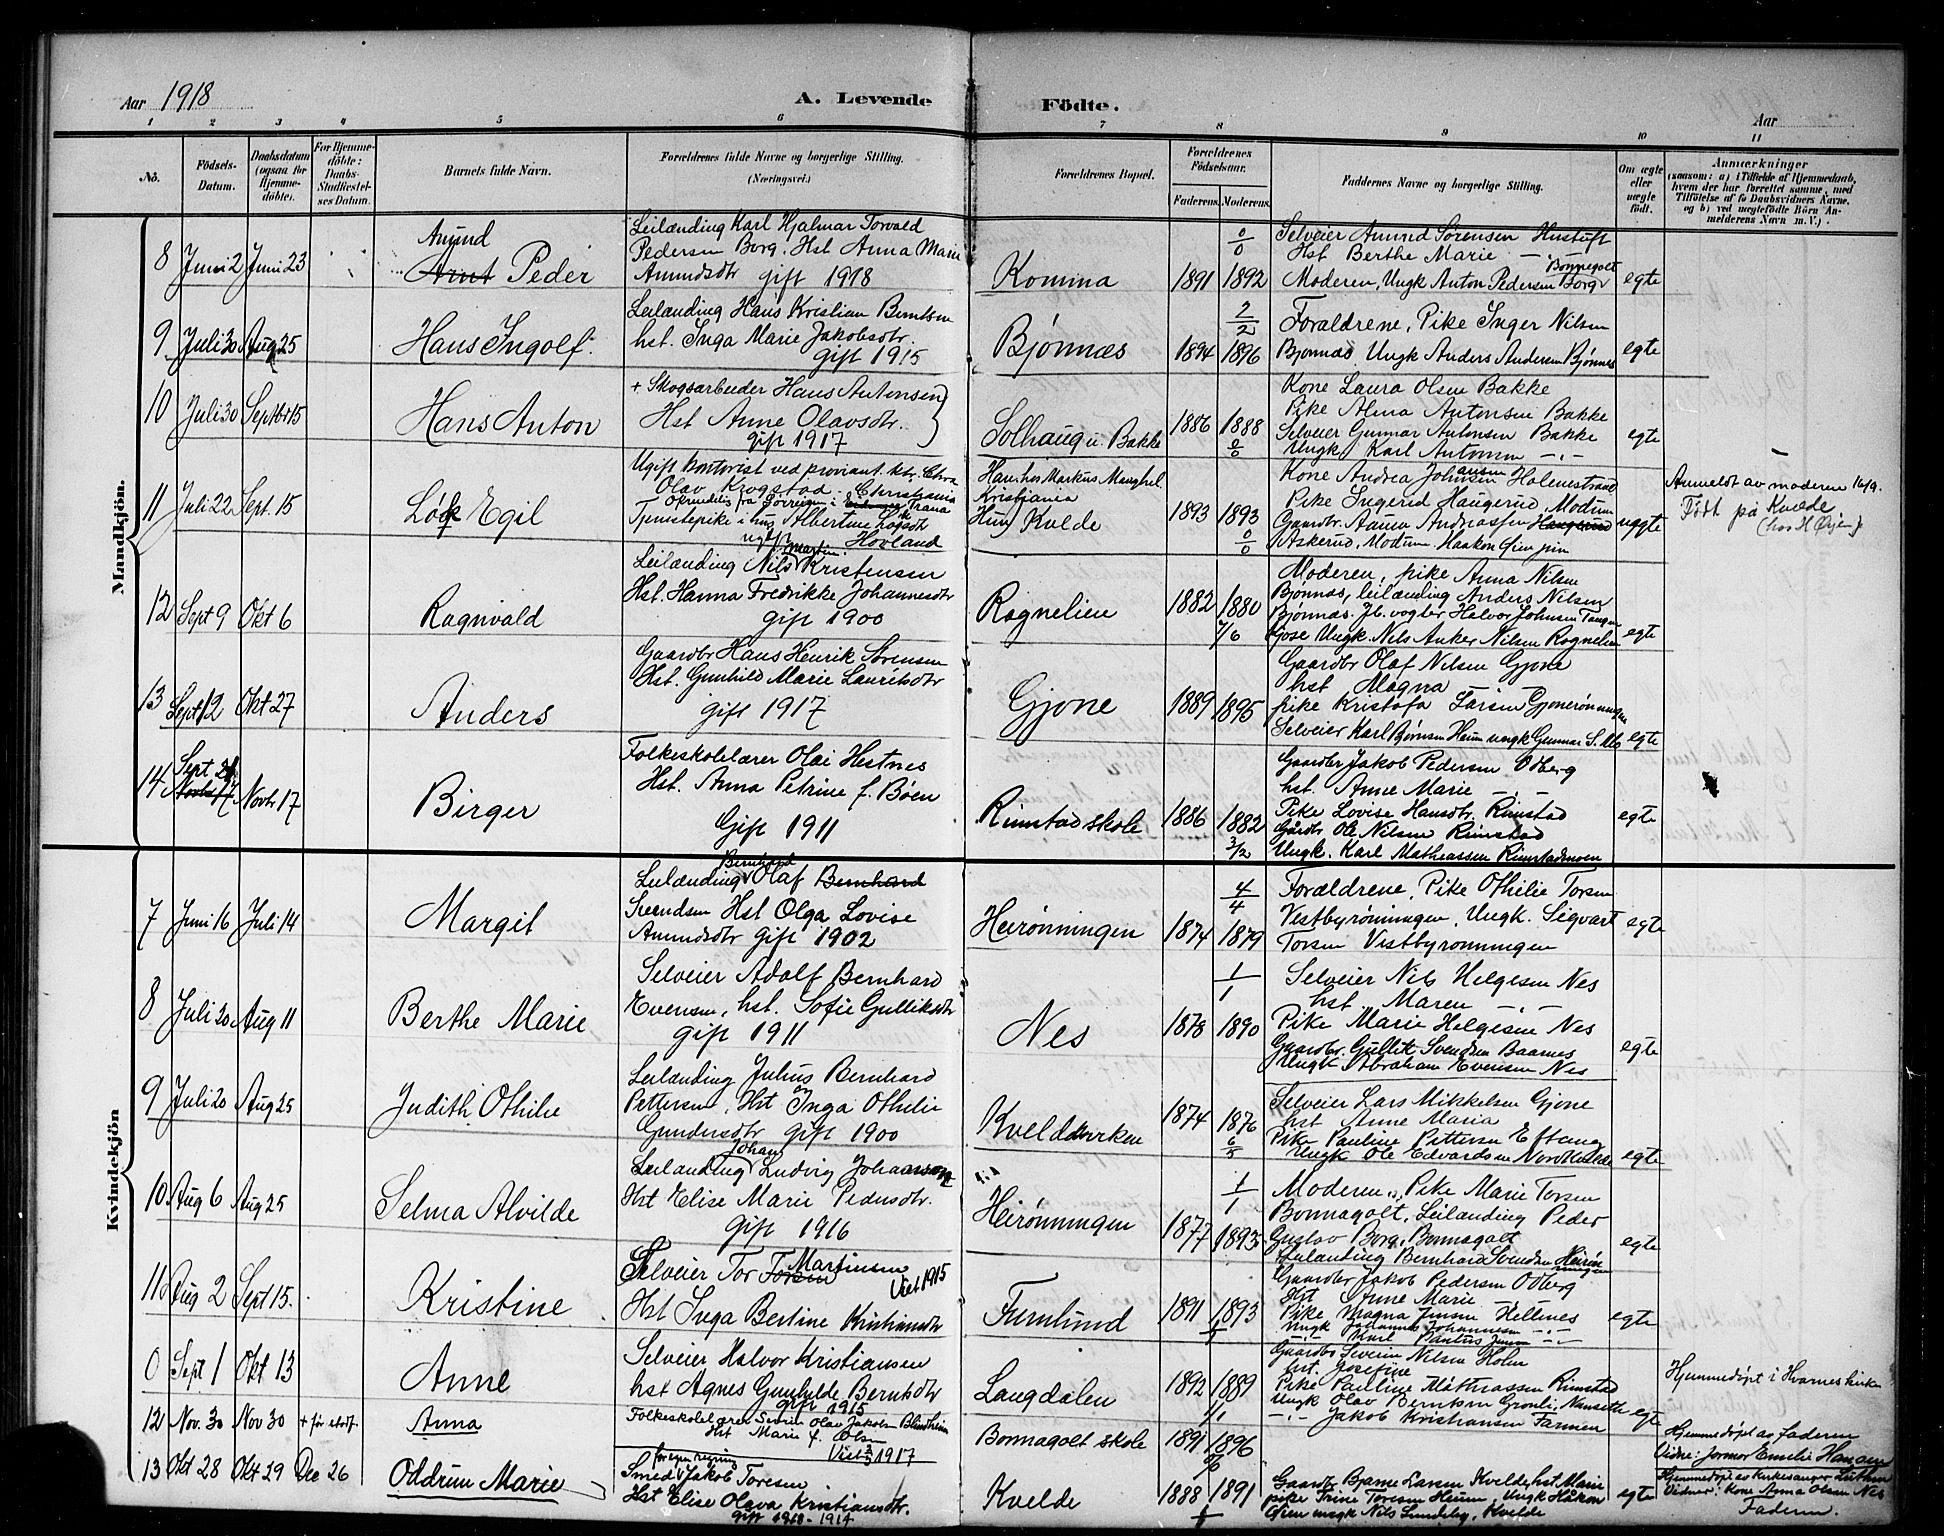 Aar 1918
A. Levende Födte.
Aar
1 2 3 4 5 6 7 8 9 10 11
No.
Födsels-Datum.
Daabsdatum (ogsaa for Hjemmedöbte).
For Hjemmedöbte: Daabs-Stadfæstelses Datum.
Barnets fulde Navn.
Forældrenes fulde Navne og borgerlige Stilling.
(Næringsvei.)
Forældrenes Bopæl.
Forældrenes Födselsaar.
Faderens. Moderens.
Faddernes Navne og borgerlige Stilling.
Om ægte eller uægte födt.
Anmærkninger
(saasom: a) i Tilfælde af Hjemmedaab, hvem der har forrettet samme, med Tilföielse af to Daabsvidners Navne, og b) ved uægtefödte Börn Anmelderens Navn m. V.)
Mandkjön.
8 Juni 2 Juni 23
Amund
Arnt Peder
Leilænding Karl Hjalmar Torvald
Pedersen Borg. Hst Anna Marie
Amundsdtr gift 1918
Komma 1891 1892
0/0
Selveier Amund Sørensen Hustuft
Hst Berthe Marie —
Bonnegolt
Moderen, Ungk Anton Pedersen Borg
egte
9 Juli 30 Aug 25
Hans Ingolf.
Leilænding Hans Kristian Berntsen
hst. Inga Marie Jakobsdtr.
gift 1915
Bjønnæs 1894 1896
2/2
Forældrene, Pike Inger Nilsen
Bjønnæs Ungk Anders Andersen Bjønnes
egte
10 Juli 30 Septbr 15
Hans Anton
+ Skogsarbeider Hans Antonsen
Hst Anne Olavsdtr.
gift 1917
Solhaug u. Bakke 1886 1888
0/0
Kone Laura Olsen Bakke
Pike Alma Antonsen Bakke
Selveier Gunnar Antonsen Bakke
Ungk Karl Antonsen —"—
egte
11 Juli 22 Sept. 15
Egil
Ugift kontorist ved proviant.
Olav Krogstad. Christiania
Tjenestepike Albertine
ugift Hovland
Han: hos Markus
Kristiania
Hun Kvelde 1893 1893
0/0
Kone Andrea Johansen Holmestrand
Pike Ingerid Haugerud Modum
Gaardbr. Andreassen Haugerud
Askerud, Modum Haakon Øien
uegte
Anmeldt av moderen 16/9.
Født på Kvelde
(hos H Øien)
12 Sept 9 Okt 6
Ragnvald
Martin
Leilænding Nils Kristensen
Hst. Hanna Fredrikke Johannesdtr
gift 1900
Rognelien 1882 1880
7/6
Moderen, pike Anna Nilsen
Bjønnæs, leilænding Anders Nilsen
Bjønnæs. Jb. vogter Halvor Johnsen
Gose Ungk. Nils Anker Nilsen Rognelien
egte
13 Sept 12 Okt 27
Anders
Gaardbr Hans Henrik Sørensen
Hst. Gunhild Marie Lauritsdtr
gift 1917
Gjone 1889 1895
Gaardbr Olaf Nilsen Gjone
hst Magna —
pike Kristofa Larsen Gjonerønningen
Selveier Karl Børnsen Heum ungk Gunnar S.
egte
14 Sept Novbr 17 Novbr 17
Birger
Folkeskolelærer Olai Hestnes
Hst. Anna Petrine f. Bøen
Gift 1911
Rimstad skole 1886 1882
3/2
Gaardbr Jakob Pedersen Odberg
hst. Anne Marie —"—
Pike Lovise Hansdtr. Rimstad
Gårdbr Ole Nilsen Rimstad
Ungk. Karl Mathiassen Rimstadmoen
egte
Kvindekjön
7 Juni 16 Juli 14
Margit
Bernhard
Leilænding Olaf Bernhard
Svendsen Hst Olga Lovise
Amundsdtr gift 1902
Heirønningen 1874 1879
4/4
Forældrene, Pike Othilie Torsen
Vestbyrønningen, Ungk. Sigvart
Torsen Vestbyrønningen
egte
8 Juli 20 Aug 11
Berthe Marie
Selveier Adolf Bernhard
Evensen, hst. Sofie Gulliksdtr
gift 1911
Nes 1878 1890
1/1
Selveier Nils Helgesen Nes
hst Maren —"—
Pike Marie Helgesen Nes
Gaardbr. Gullik Svendsen Baarnes
Ungk Abraham Evensen Nes
egte
9 Juli 20 Aug 25
Judith Othilie
Leilænding Julius Bernhard
Pettersen, Hst Inga Othilie
Gundersdtr gift 1900
Kvelde 1874 1876
6/5
Selveier Lars Mikkelsen Gjone
hst Anne Maria
Pike Pauline Pettersen Eftang
Ungk Ole Edvardsen Nordkvelde
egte
10 Aug 6 Aug 25
Selma Alvilde
Johan
Leilænding Ludvig Johannsen
Hst Elise Marie Pedersdtr.
gift 1916
Heirønningen 1877 1893
1/1
Moderen, Pike Marie Torsen
Bonnagolt, Leilænding Peder
Gustav Borg, Bonnagolt
Leilænding Bernhard Svendsen Heirønningen
egte
11 Aug 2 Sept 15.
Kristine
Martinsen
Selveier Tor Torsen
Viet 1915
Hst Inga Bertine Kristiansdtr
Furulund 1891 1893
Gaardbr Jakob Pedersen Odberg
Hst Anne Marie —
Pike Magna Jensen Hellenes
Ungk Johannes Johannesen —"—
Karl Jensen —"—
egte
0 Sept 1 Okt 13
Anne
Selveier Halvor Kristiansen
hst Agnes Gunhilde Berntsdtr
gift 1915
Langdalen 1892 1889
1/1
Gaardbr Severin Nilsen Holm
hst. Josefine
Pike Pauline Mathiassen Rimstad
Ungk Olav Berntsen Grønli, Nanseth
—"— Jakob Kristiansen Farmen
egte
Hjemmedøpt i Hvarnes kirke
12 Nov. 30 Nov 30 + før stadf.
Anna
Folkeskolelærer Simen Olav Jakobsen Blindheim
Hst Marie f. Olsen
Viet 1917
Bonnagolt skole 1891 1896
Hjemmedøpt av faderen
Vidne: Jormor Emilie Hansen
13 Okt 28 Okt 29 Dec 26
Oddrun Marie
for egen regning
Smed Jakob Toresen
Hst Elise Olava Kristiansdtr.
gift 1918 - 1914
Kvelde 1888 1891
Gaardbr Bjarne Larsen Kvelde hst Marie
pike Trine Toresen Heum, Ungk Håkon
Øien ungk Nils Lundeby, Kvelde
egte
Hjemmedøpt av Kirkesanger
Vidner: Kone Anna Olsen Nes
Faderen.